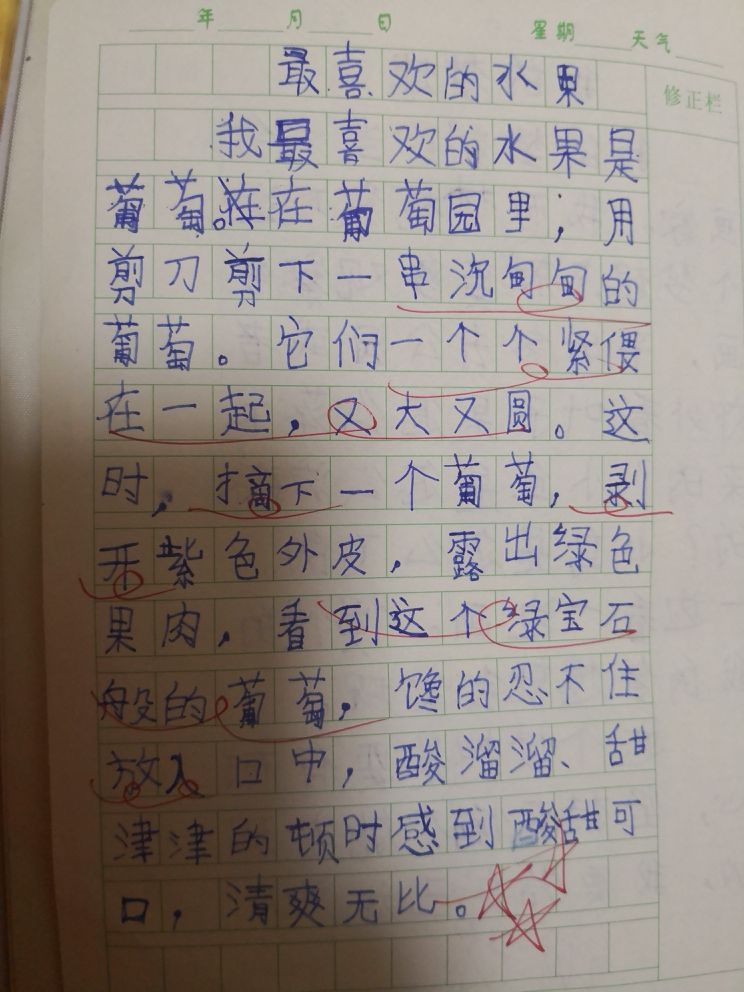 年 月 日 星期 天气
修正栏
最喜欢的水果
我最喜欢的水果是
葡萄。在在葡萄园里，用
剪刀剪下一串沉甸甸的
葡萄。它们一个个紧偎
在一起，又大又圆。这
时，摘下一个葡萄，剥
开紫色外皮，露出绿色
果肉，看到这个绿宝石
般的葡萄，馋的忍不住
放入口中，酸溜溜、甜
津津的顿时感到酸甜可
口，清爽无比。